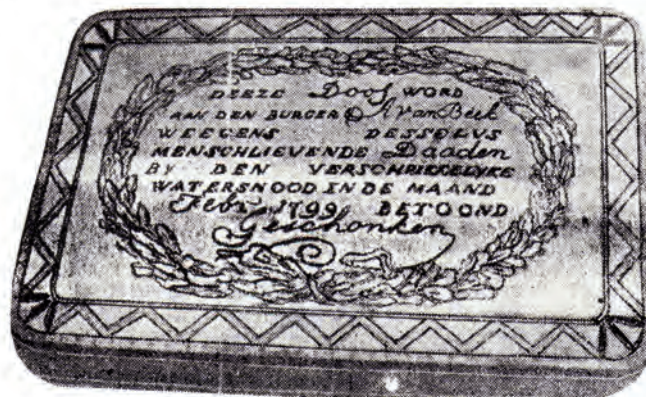 DEEZE Doos WORD
AAN DEN BURGER A van Beek
WEEGENS DESSELVS
MENSCHLIEVENDE Daaden
BY DEN VERSCHRIKKELYKE
WATERSNOOD IN DE MAAND
Febr. 1799 BETOOND
Geschonken